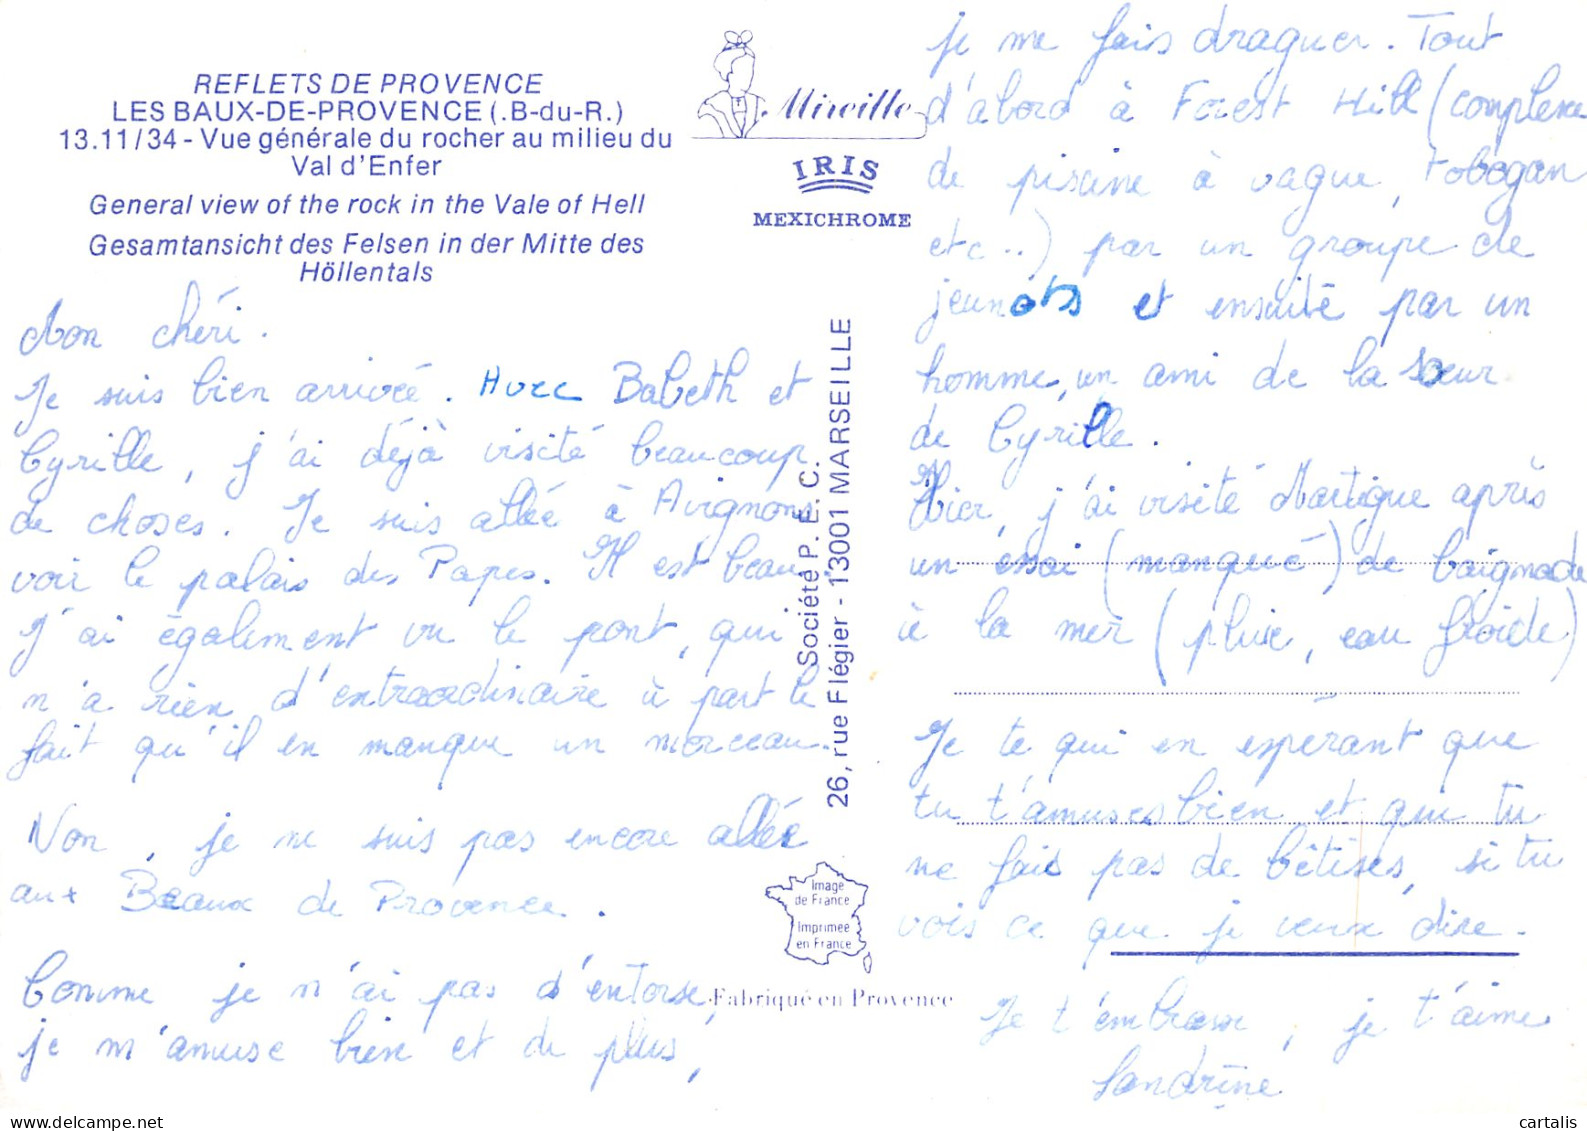 REFLETS DE PROVENCE
LES BAUX-DE-PROVENCE (.B-du-R.)
13.11/34 - Vue générale du rocher au milieu du
Val d'Enfer
General view of the rock in the Vale of Hell
Gesamtansicht des Felsen in der Mitte des
Höllentals
Mireille
IRIS
MEXICHROME
Mon chéri.
Je suis bien arrivée. Avec Babeth et
Cyrille, j'ai déjà visité beaucoup
de choses. Je suis allée à Avignons
voir le palais des Papes. Il est beau.
J'ai également vu le pont, qui
n'a rien d'extraordinaire à part le
fait qu'il en manque un morceau.
Non, je ne suis pas encore allée
aux Beaux de Provence.
Comme je n'ai pas d'entorse,
je m'amuse bien et de plus,
Société P. E. C.
26, rue Flégier - 13001 MARSEILLE
Image
de France
Imprimée
en France
Fabriqué en Provence
je me fais draguer. Tout
d'abord à Forest Hill (complexe
de piscine à vague, tobogan
etc..) par un groupe de
jeunots et ensuite par un
homme, un ami de la sœur
de Cyrille.
Hier, j'ai visité Martigue après
un essai (manqué) de baignade
à la mer (pluie, eau froide)
Je te qui en espérant que
tu t'amuses bien et que tu
ne fais pas de bêtises, si tu
vois ce que je veux dire.
Je t'embrasse, je t'aime
Sandrine
cartalis